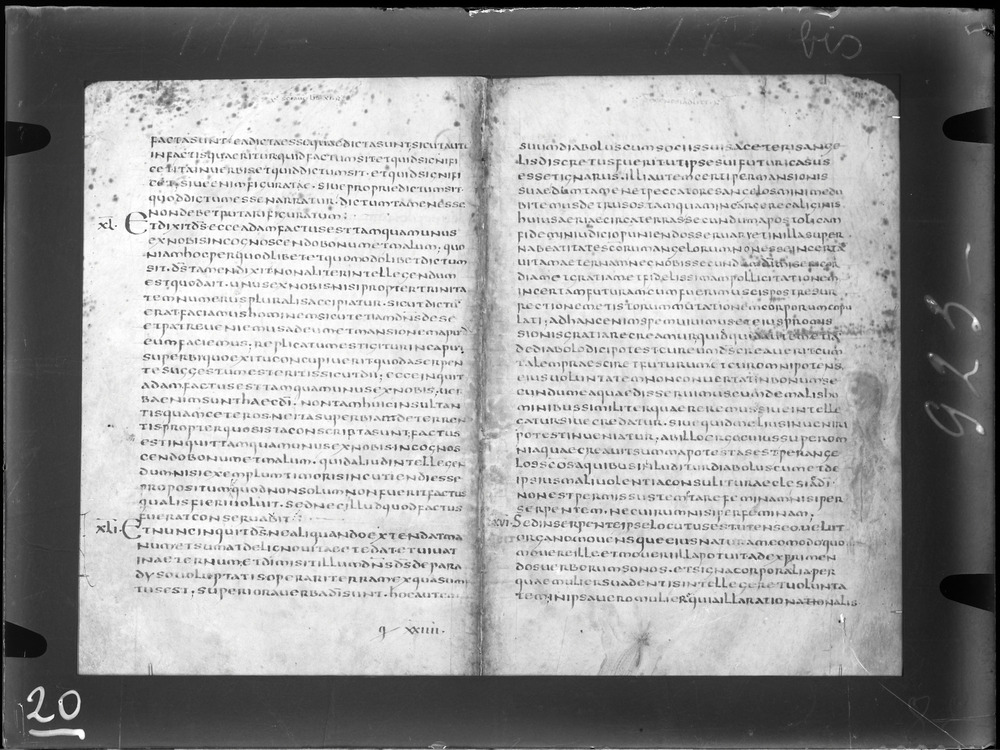 factasunt · eadictaessequaedictasuntsicutaute
infactisquaeriturquidfactumsitetquidsignifi
cetitainverbisetquiddictumsit · etquidsignifi
cet · siveenimfiguratae · siveproprie dictumsit
quoddictumessenarratur · dictumtamenesse
nondebetputarifiguratum :
xl · Etdixitd̄s ecceadamfactusesttamquamunus
exnobisincognoscendobonumetmalum · quo
niamhocperquodlibetetquomodolibetdictum
sit · d̄stamendixitnonaliterintellegendum
estquodait · unusexnobisnisipropter trinita
temnumeruspluralisaccipiatur · sicutdictū
eratfaciamushominemsicutetiamdn̄sdese
etpatreveniemusadeumetmansionemapud
eumfaciemus ; replicatumestigiturincaput
superbiquoexituconcupiveritquodaserpen
tesuggestumesteritissicutdii ; ecceinquit
adamfactusesttamquamunusexnobis ; ver
baenimsunthaecd̄i · nontamhuicinsultan
tisquamceterosneitasuperbiantdeterren
tispropterquosistaconscriptasunt ; factus
estinquittamquamunusexnobisincognos
cendobonumetmalum · quidaliudintellegen
dumnisiexemplumtimorisincutiendiesse
propositumquodnonsolumnonfueritfactus
qualisfierivoluit · sednecilludquodfactus
fueratconservabit :
xli · Etnuncinquitd̄snealiquandoextendatma
numetsumatdelignovitaeetedatetvivat
inaeternumetdimisitillumdn̄sd̄sdepara
dysovoluptatisoperariterramexquasum
tusest ; superioraverbad̄isunt · hocautem
q xxiiii ·
suumdiaboluscumsociissuisaceterisange
lisdiscretusfueritutipsesuifuturicasus
essetignarus · illiautemcertipermansionis
suaedumtamenetpeccatoresangelosinimedu
bitemusdetrusostamquamincarcerecaliginis
huiusaeriaecircaterrassecundumapostolicam
fideminiudiciopuniendosservarietinillasuper
nabeatitatescorumangelorumnonesseincerta
vitamaeternamnecnobissecundumd̄imisericor
diametgratiametfidelissimampollicitationem
incertamfuturamcumfuerimuseispostresur
rectionemetistorummutationemcorporumcopu
lati ; adhancenimspemvivimusetexeiuspromis
sionisgratiarecreamurquidquidautemetia
dediabolodicipotestcureumd̄screaveritcum
talempraesciretfuturumetcuromnipotens
eiusvoluntatemnonconvertatinbonumse
cundumeaquaedisseruimuscumdemalisho
minibussimiliterquaereremus · siveintelle
caturs · ivecredatur · sivequidmeliusinveniri
potestinveniatur ; abilloergocuiussuperom
niaquaecreavitsummapotestasestperange
losscosaquibusilluditurdiaboluscumetde
ipsiusmalivolentiaconsulituraeclesiaed̄i ·
nonestpermissustemptarefeminamnisiper
serpentem · necvirumnisiperfeminam ·
Sedinserpenteipselocutusestutenseovelut
organomovensqueeiusnaturameomodoquo
movereilleetmoveriillapotuitadexprimen
dosverborumsonos · etsignacorporaliaper
quaemuliersuadentisintellegeretvolunta
tem ; inipsaveromulierequiaillarationalis
20
923
bis